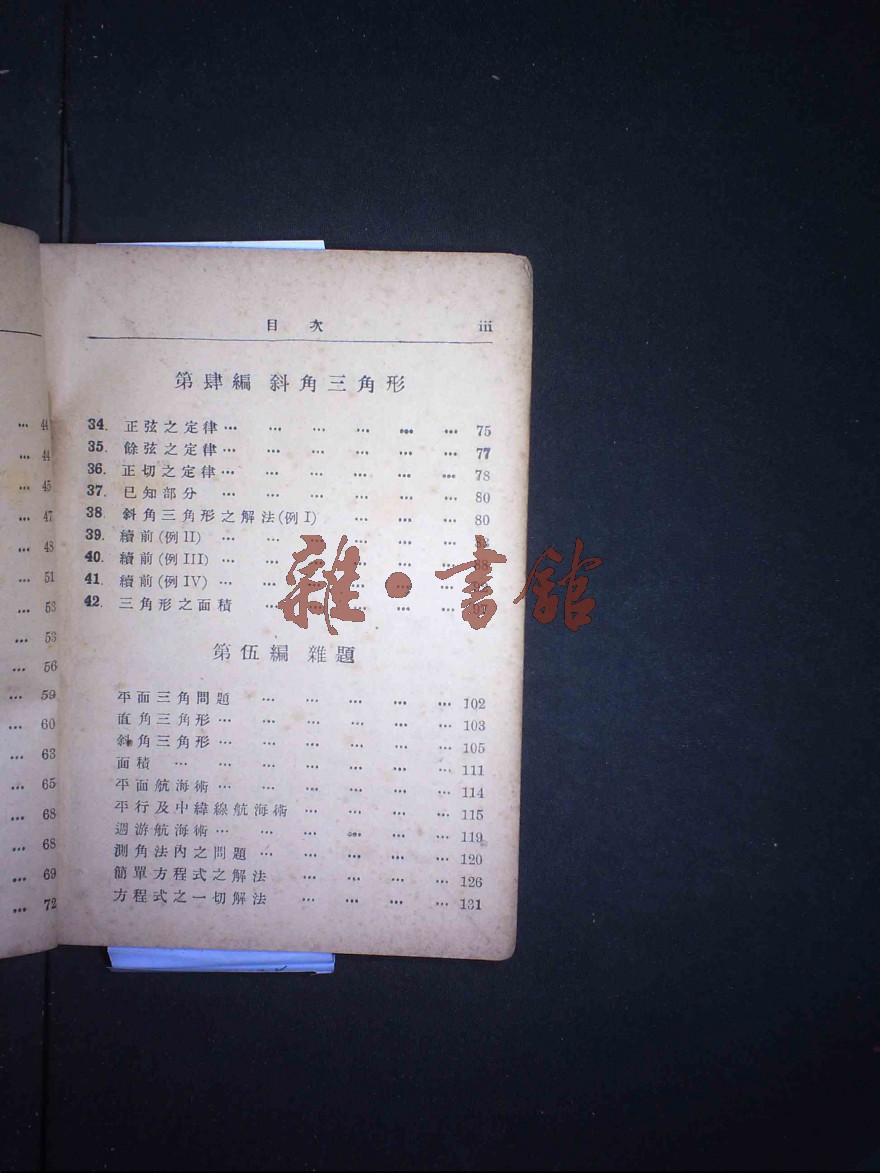 44
44
45
47
48
51
53
53
56
59
60
63
65
68
68
69
72
目 次 iii
第肆編 斜角三角形
34. 正弦之定律 … … … … … … 75
35. 餘弦之定律 … … … … … … 77
36. 正切之定律 … … … … … … 78
37. 已知部分 … … … … … … 80
38. 斜角三角形之解法(例 I) … … … 80
39. 續前(例 II) … …
40. 續前(例 III) … … 88
41. 續前(例 IV) … …
42. 三角形之面積 … …
雜·書館
第伍編 雜題
平面三角問題 … … … … … 102
直角三角形 … … … … … … 103
斜角三角形 … … … … … … 105
面積 … … … … … … … 111
平面航海術 … … … … … … 114
平行及中緯線航海術 … … … … 115
週游航海術 … … … … … … 119
測角法內之問題 … … … … … 120
簡單方程式之解法 … … … … 126
方程式之一切解法 … … … … 131